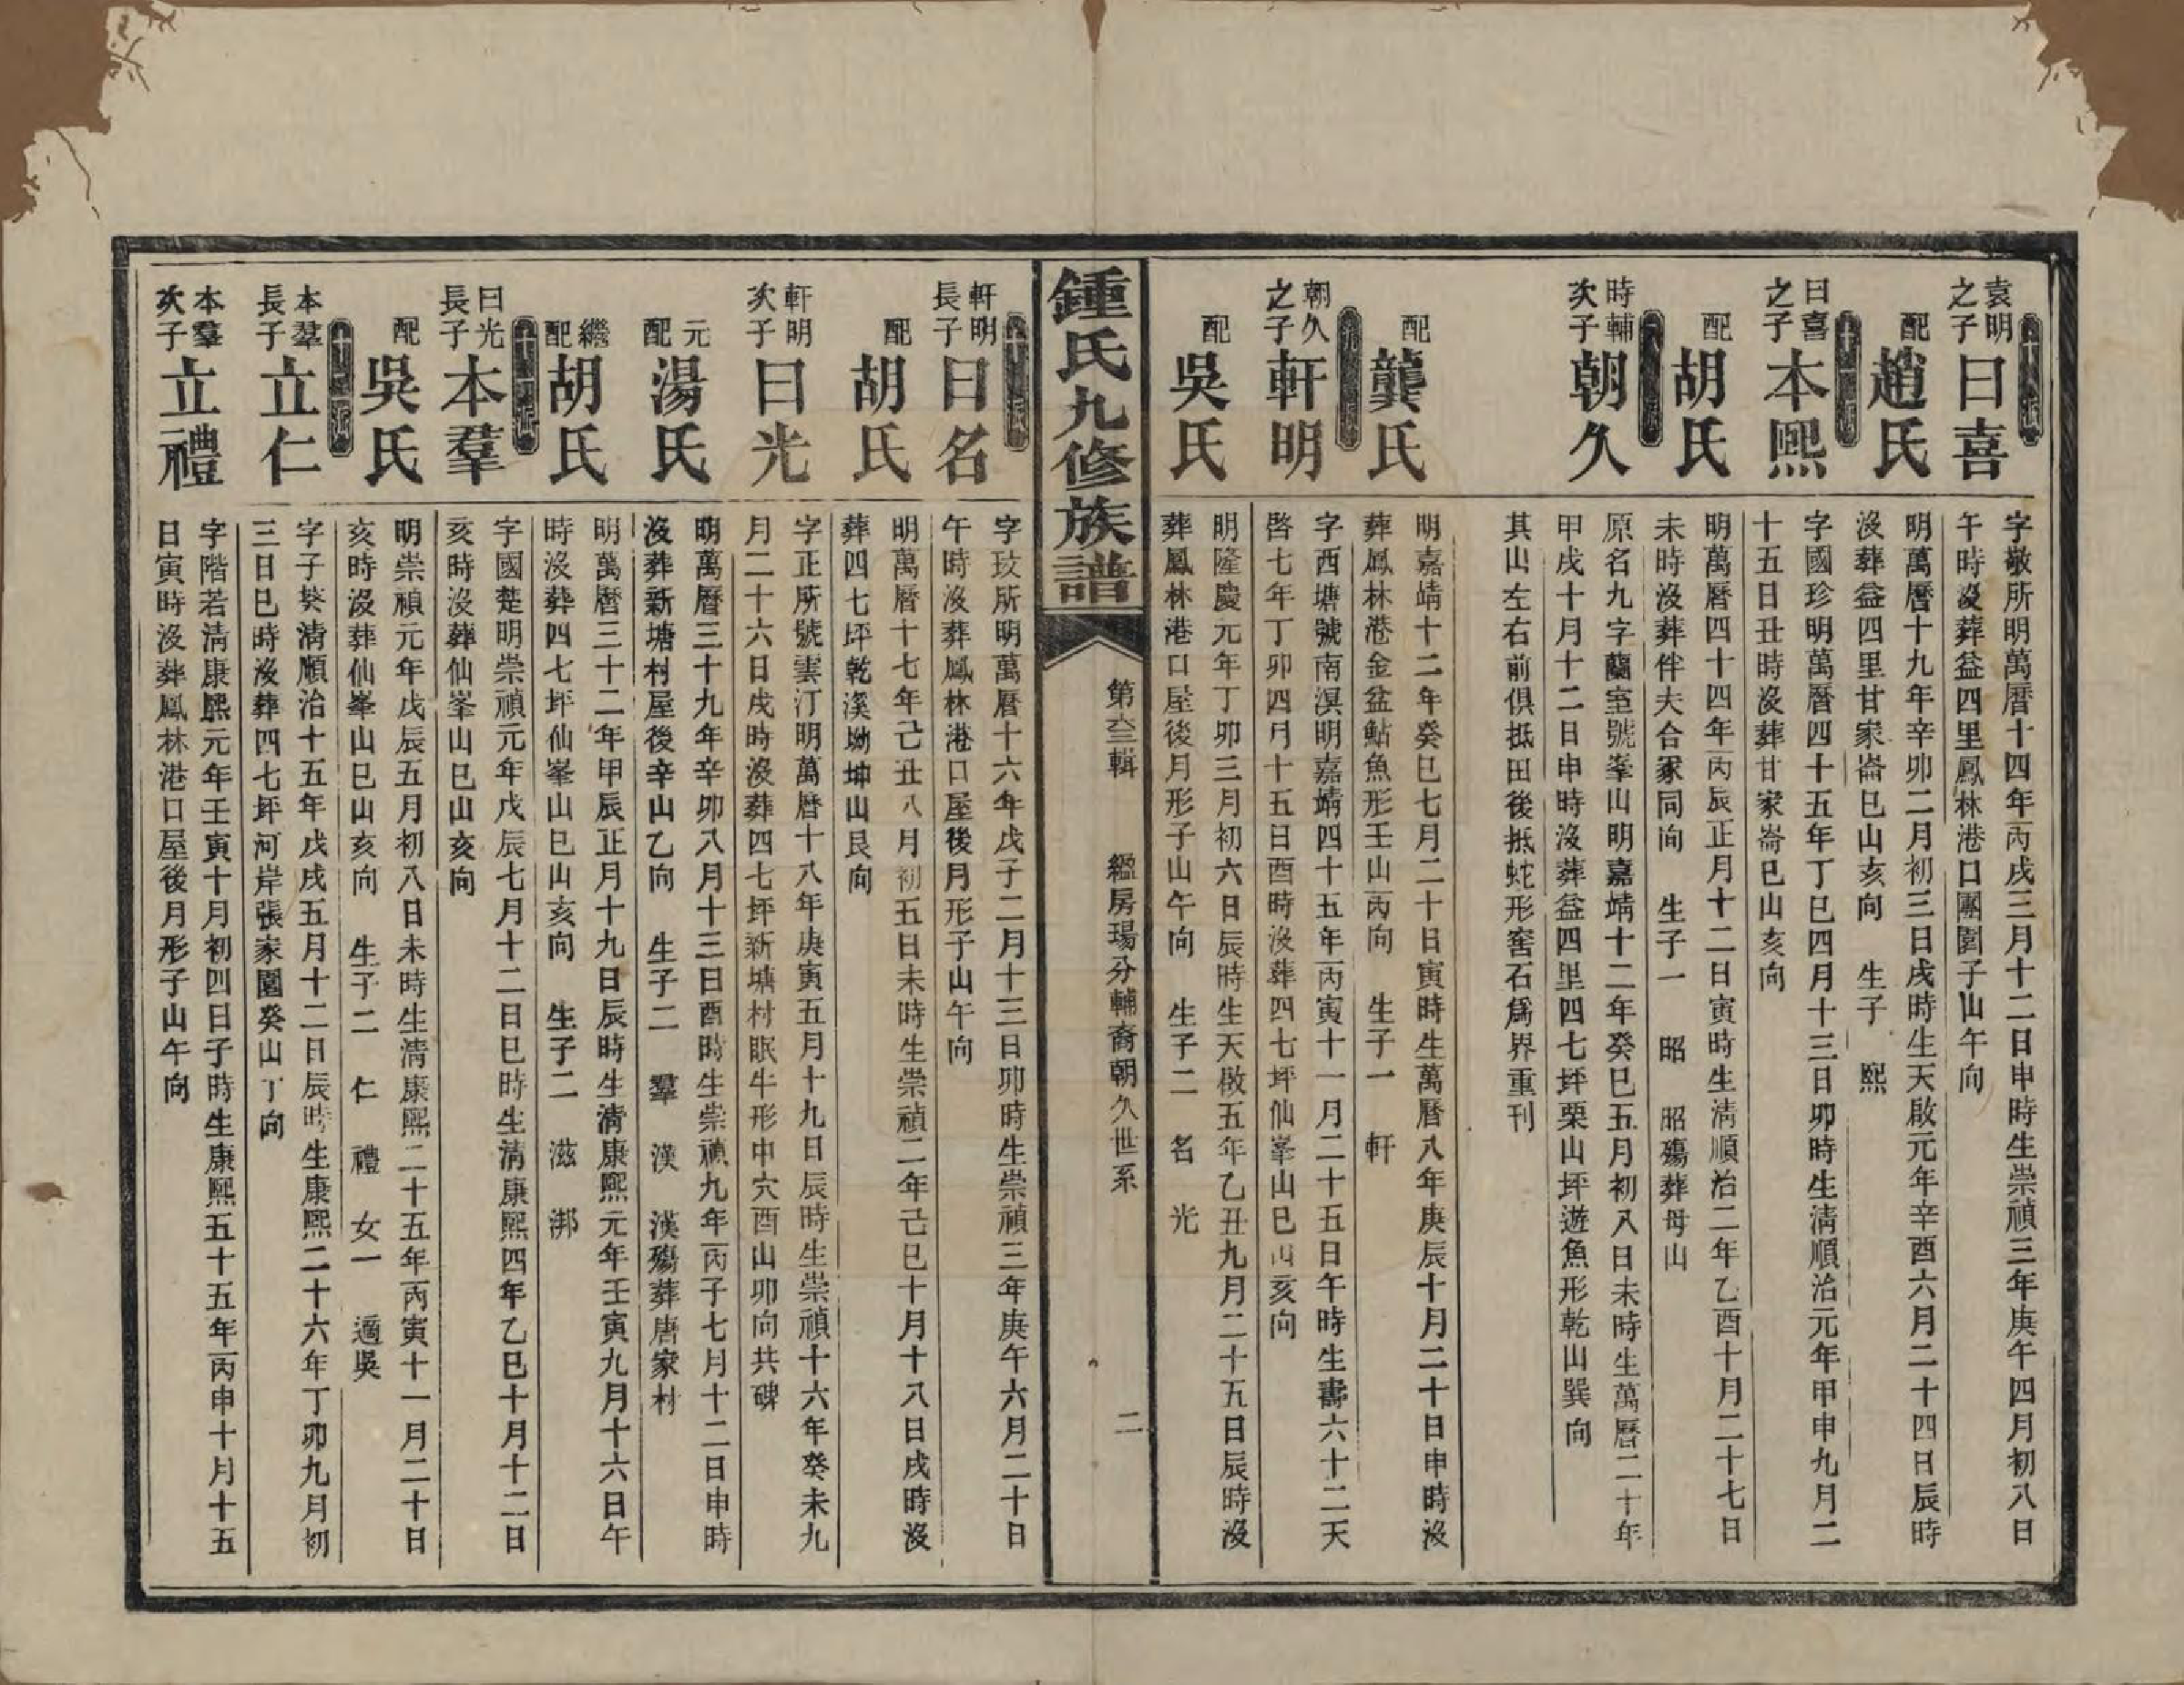 袁明之子
曰喜
字敬所明萬曆十四年丙戌三月十二日申時生崇禎三年庚午四月初八日
午時沒葬益四里鳳林港口團園子山午向
配趙氏
明萬曆十九年辛卯二月初三日戌時生天啟元年辛酉六月二十四日辰時
沒葬益四里甘家崙巳山亥向 生子 熙
曰喜之子
本熙
字國珍明萬曆四十五年丁巳四月十三日卯時生清順治元年甲申九月二
十五日丑時沒葬甘家崙巳山亥向
配胡氏
明萬曆四十四年丙辰正月十二日寅時生清順治二年乙酉十月二十七日
未時沒葬伴夫合冢同向 生子一 昭 昭殤葬母山
時輔次子
朝久
原名九字蘭室號峯山明嘉靖十二年癸巳五月初八日未時生萬曆二十年
甲戌十月十二日申時沒葬益四里四七坪栗山坪遊魚形乾山巽向
其山左右前俱抵田後抵蛇形窖石爲界重刊
配龔氏
明嘉靖十二年癸巳七月二十日寅時生萬曆八年庚辰十月二十日申時沒
葬鳳林港金盆鮎魚形壬山丙向 生子一 軒
朝久之子
軒明
字西塘號南溟明嘉靖四十五年丙寅十一月二十五日午時生壽六十二天
啓七年丁卯四月十五日酉時沒葬四七坪仙峯山巳山亥向
配吳氏
明隆慶元年丁卯三月初六日辰時生天啟五年乙丑九月二十五日辰時沒
葬鳳林港口屋後月形子山午向 生子二 名 光
鍾氏九修族譜
第叁輯 繼房瑒分輔裔朝久世系 二
軒明長子
曰名
字玟所明萬曆十六年戊子二月十三日卯時生崇禎三年庚午六月二十日
午時沒葬鳳林港口屋後月形子山午向
配胡氏
明萬曆十七年己丑八月初五日未時生崇禎二年己巳十月十八日戌時沒
葬四七坪乾溪坳坤山艮向
軒明次子
曰光
字正所號雲汀明萬曆十八年庚寅五月十九日辰時生崇禎十六年癸未九
月二十六日戌時沒葬四七坪新塘村眠牛形中穴酉山卯向共碑
元配湯氏
明萬曆三十九年辛卯八月十三日酉時生崇禎九年丙子七月十二日申時
沒葬新塘村屋後辛山乙向 生子二 羣 漢 漢殤葬唐家村
繼配胡氏
明萬曆三十二年甲辰正月十九日辰時生清康熙元年壬寅九月十六日午
時沒葬四七坪仙峯山巳山亥向 生子二 滋 㴙
曰光長子
本羣
字國楚明崇禎元年戊辰七月十二日巳時生清康熙四年乙巳十月十二日
亥時沒葬仙峯山巳山亥向
配吳氏
明崇禎元年戊辰五月初八日未時生清康熙二十五年丙寅十一月二十日
亥時沒葬仙峯山巳山亥向 生子二 仁 禮 女一 適吳
本羣長子
立仁
字子榮清順治十五年戊戌五月十二日辰時生康熙二十六年丁卯九月初
三日巳時沒葬四七坪河岸張家園癸山丁向
本羣次子
立禮
字階若清康熙元年壬寅十月初四日子時生康熙五十五年丙申十月十五
日寅時沒葬鳳林港口屋後月形子山午向